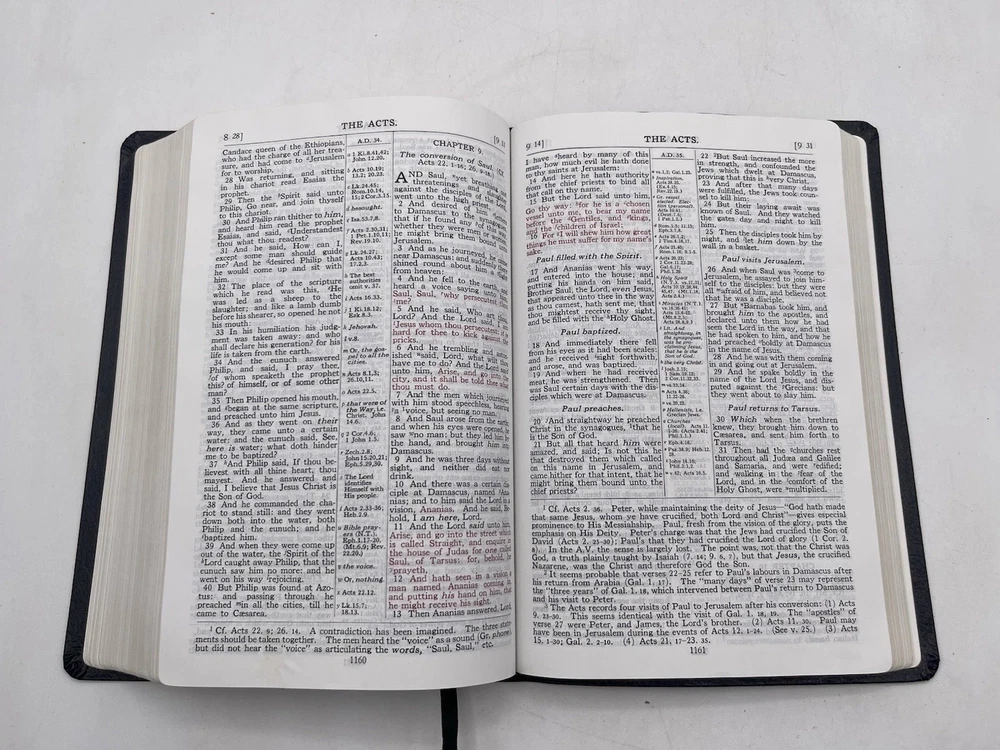 THE ACTS.
8 28]
[9
Candace queen of the Ethiopians,
who had the charge of all her trea-
sure, and had come to Jerusalem
for to worship,
28 Was returning, and sitting
in his chariot read Esaias the
prophet.
29 Then the Spirit said unto
Philip, Go near, and join thyself
to this chariot.
30 And Philip ran thither to him,
and heard him read the prophet
Esaias, and said, Understandest
thou what thou readest?
31 And he said, How can I,
except some man should guide
me? And he desired Philip that
he would come up and sit with
him.
32 The place of the scripture
which he read was this, He
was led as a sheep to the
slaughter; and like a lamb dumb
before his shearer, so opened he not
his mouth:
33 In his humiliation his judg-
ment was taken away: and who
shall declare his generation? for his
life is taken from the earth.
34 And the eunuch answered
Philip, and said, I pray thee,
of whom speaketh the prophet
this? of himself, or of some other
man?
35 Then Philip opened his mouth,
and began at the same scripture,
and preached unto him Jesus.
36 And as they went on their
way, they came unto a certain
water: and the eunuch said, See,
here is water; what doth hinder
me to be baptized?
37 And Philip said, If thou be-
lievest with all thine heart, thou
mayest. And he answered and
said, I believe that Jesus Christ is
the Son of God.
38 And he commanded the cha-
riot to stand still: and they went
down both into the water, both
Philip and the eunuch; and he
baptized him.
39 And when they were come up
out of the water, the Spirit of the
Lord caught away Philip, that the
eunuch saw him no more: and he
went on his way rejoicing.
40 But Philip was found at Azo-
tus: and passing through he
preached in all the cities, till he
came to Cæsarea.
A.D. 34.
1 Ki.8.41,42;
John 12.20.
Acts 10.19;
13.2; 20.23.
Lk.24.45;
Rom.10.14,
15; 2 Cor.3.15.
besought.
Isa.53.7,8.
Acts 2.30,31;
1 Pet.1.10,11;
Rev.19.10.
Lk.24.27;
Acts 10.43;
17.2,3.
h The best
authorities
omit v. 37.
Acts 16.33.
1 Ki.18.12;
Ezk.8.3.
k Jehovah.
l v.8.
m Or, the gos-
pel to all the
cities.
Acts 8.1,3;
26.10,11.
Acts 22.5.
p that were of
the Way, i.e.
Christ. John
14.6.
2 Cor.4.6;
1 John 1.5.
r Zech.2.8;
John 15.20,21;
Eph.5.29,30.
The Lord
identifies
Himself with
His people.
Acts 2.33-36;
Heb.2.9.
u Bible pray-
ers (N.T.).
Eph.1.17-20.
(Mt.6.9; Rev.
22.20.)
the voice.
w Or, nothing.
x Acts 22.12.
y Lk.15.7;
18.13.
CHAPTER 9.
The conversion of Saul.
Acts 22. 1-16; 26. 9-18).
AND Saul, yet breathing out
threatenings and
against the disciples of the
went unto the high priest,
2 And desired of him
to Damascus to the
that if he found any of
whether they were men or
he might bring them bound
Jerusalem.
3 And as he journeyed, he came
near Damascus: and suddenly
shined round about him a
from heaven:
4 And he fell to the earth, and
heard a voice saying unto him,
Saul, Saul, why persecutest
me?
5 And he said, Who art thou,
Lord? And the Lord said, I am
Jesus whom thou persecutest:
hard for thee to kick against the
pricks.
6 And he trembling and aston-
ished said, Lord, what wilt thou
have me to do? And the Lord said
unto him, Arise, and go into the
city, and it shall be told thee what
thou must do.
7 And the men which journeyed
with him stood speechless, hearing
a voice, but seeing no man.
8 And Saul arose from the earth;
and when his eyes were opened, he
saw no man: but they led him by
the hand, and brought him into
Damascus.
9 And he was three days without
sight, and neither did eat nor
drink.
10 And there was a certain dis-
ciple at Damascus, named Ana-
nias; and to him said the Lord in a
vision, Ananias. And he said, Be-
hold, I am here, Lord.
11 And the Lord said unto him,
Arise, and go into the street which
is called Straight, and enquire in
the house of Judas for one called
Saul, of Tarsus: for, behold, he
prayeth,
12 And hath seen in a vision a
man named Ananias coming in,
and putting his hand on him, that
he might receive his sight.
13 Then Ananias answered, Lord,
1 Cf. Acts 22. 9; 26. 14. A contradiction has been imagined. The three state-
ments should be taken together. The men heard the "voice" as a sound (Gr. phone),
but did not hear the "voice" as articulating the words, "Saul, Saul," etc.
1160
THE ACTS.
9 14]
[9 31
I have heard by many of this
man, how much evil he hath done
to thy saints at Jerusalem:
14 And here he hath authority
from the chief priests to bind all
that call on thy name.
15 But the Lord said unto him,
Go thy way: for he is a chosen
vessel unto me, to bear my name
before the Gentiles, and kings,
and the children of Israel:
16 For I will shew him how great
things he must suffer for my name's
sake.
Paul filled with the Spirit.
17 And Ananias went his way,
and entered into the house; and
putting his hands on him said,
Brother Saul, the Lord, even Jesus,
that appeared unto thee in the way
as thou camest, hath sent me, that
thou mightest receive thy sight,
and be filled with the Holy Ghost.
Paul baptized.
18 And immediately there fell
from his eyes as it had been scales:
and he received sight forthwith,
and arose, and was baptized.
19 And when he had received
meat, he was strengthened. Then
was Saul certain days with the dis-
ciples which were at Damascus.
Paul preaches.
20 And straightway he preached
Christ in the synagogues, that he
is the Son of God.
21 But all that heard him were
amazed, and said; Is not this he
that destroyed them which called
on this name in Jerusalem, and
came hither for that intent, that he
might bring them bound unto the
chief priests?
A.D. 35.
22 But Saul increased the more
in strength, and confounded the
Jews which dwelt at Damascus,
proving that this is very Christ.
23 And after that many days
were fulfilled, the Jews took coun-
sel to kill him:
24 But their laying await was
known of Saul. And they watched
the gates day and night to kill
him.
25 Then the disciples took him by
night, and let him down by the
wall in a basket.
Paul visits Jerusalem.
26 And when Saul was come to
Jerusalem, he assayed to join him-
self to the disciples: but they were
all afraid of him, and believed not
that he was a disciple.
27 But Barnabas took him, and
brought him to the apostles, and
declared unto them how he had
seen the Lord in the way, and that
he had spoken to him, and how he
had preached boldly at Damascus
in the name of Jesus.
28 And he was with them coming
in and going out at Jerusalem.
29 And he spake boldly in the
name of the Lord Jesus, and dis-
puted against the Grecians: but
they went about to slay him.
Paul returns to Tarsus.
30 Which when the brethren
knew, they brought him down to
Cæsarea, and sent him forth to
Tarsus.
31 Then had the churches rest
throughout all Judæa and Galilee
and Samaria, and were edified;
and walking in the fear of the
Lord, and in the comfort of the
Holy Ghost, were multiplied.
1 Cf. Acts 2. 36. Peter, while maintaining the deity of Jesus—"God hath made
that same Jesus, whom ye have crucified, both Lord and Christ"—gives especial
prominence to His Messiahship. Paul, fresh from the vision of the glory, puts the
emphasis on His Deity. Peter's charge was that the Jews had crucified the Son of
David (Acts 2. 25-30); Paul's that they had crucified the Lord of glory (1 Cor. 2.
8). In the A.V. the sense is largely lost. The point was, not that the Christ was
God, a truth plainly taught by Isaiah (7. 14; 9. 6, 7), but that Jesus, the crucified
Nazarene, was the Christ and therefore God the Son.
2 It seems probable that verses 22-25 refer to Paul's labours in Damascus after
his return from Arabia (Gal. 1. 17). The "many days" of verse 23 may represent
the "three years" of Gal. 1. 18, which intervened between Paul's return to Damascus
and his visit to Peter.
3 The Acts records four visits of Paul to Jerusalem after his conversion: (1) Acts
9. 23-30. This seems identical with the visit of Gal. 1. 18, 19. The "apostles" of
verse 27 were Peter, and James, the Lord's brother. (2) Acts 11. 30. Paul may
have been in Jerusalem during the events of Acts 12. 1-24. (See v. 25.) (3) Acts
15. 1-30; Gal. 2. 2-10. (4) Acts 21. 17-23. 35.
1161